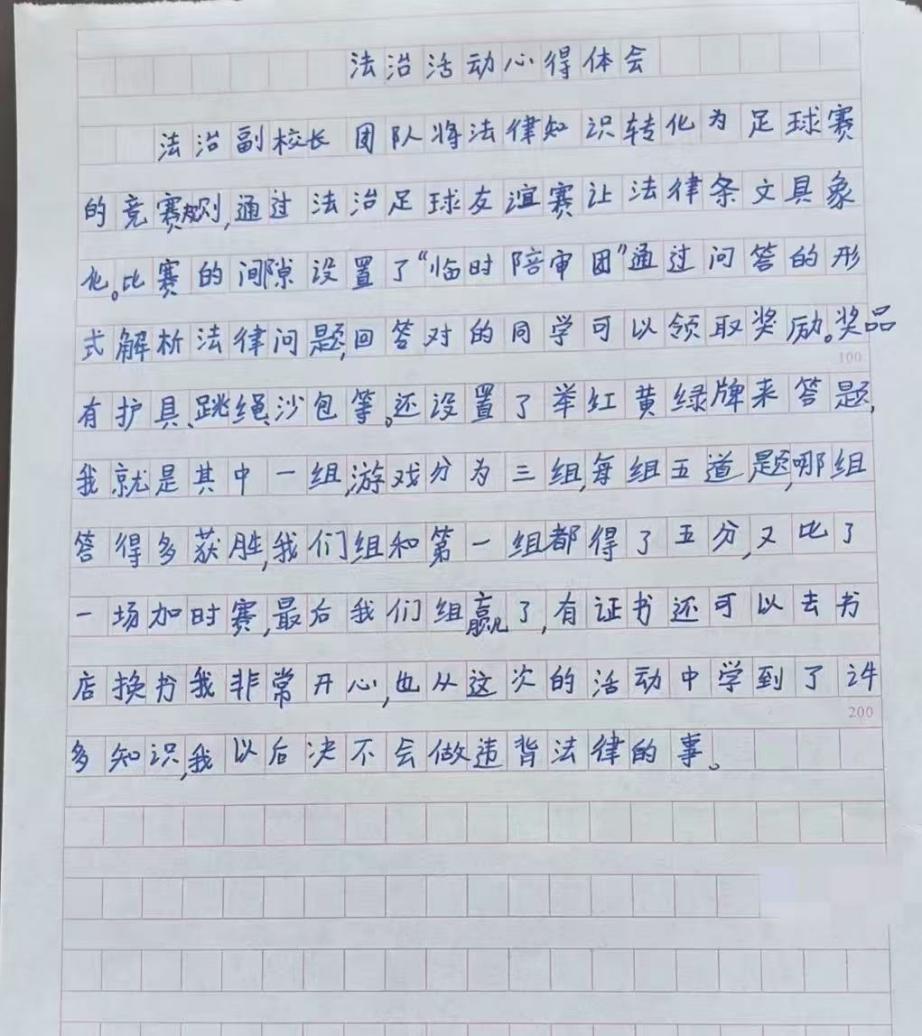 法治活动心得体会
法治副校长团队将法律知识转化为足球赛
的竞赛规则,通过法治足球友谊赛让法律条文具象
化。比赛的间隙设置了“临时陪审团”通过问答的形
式解析法律问题,回答对的同学可以领取奖励。奖品
100
有护具、跳绳、沙包等。还设置了举红黄绿牌来答题,
我就是其中一组,游戏分为三组,每组五道题,哪组
答得多获胜,我们组和第一组都得了五分,又比了
一场加时赛,最后我们组赢了,有证书还可以去书
店换书我非常开心,也从这次的活动中学到了许
200
多知识,我以后决不会做违背法律的事。